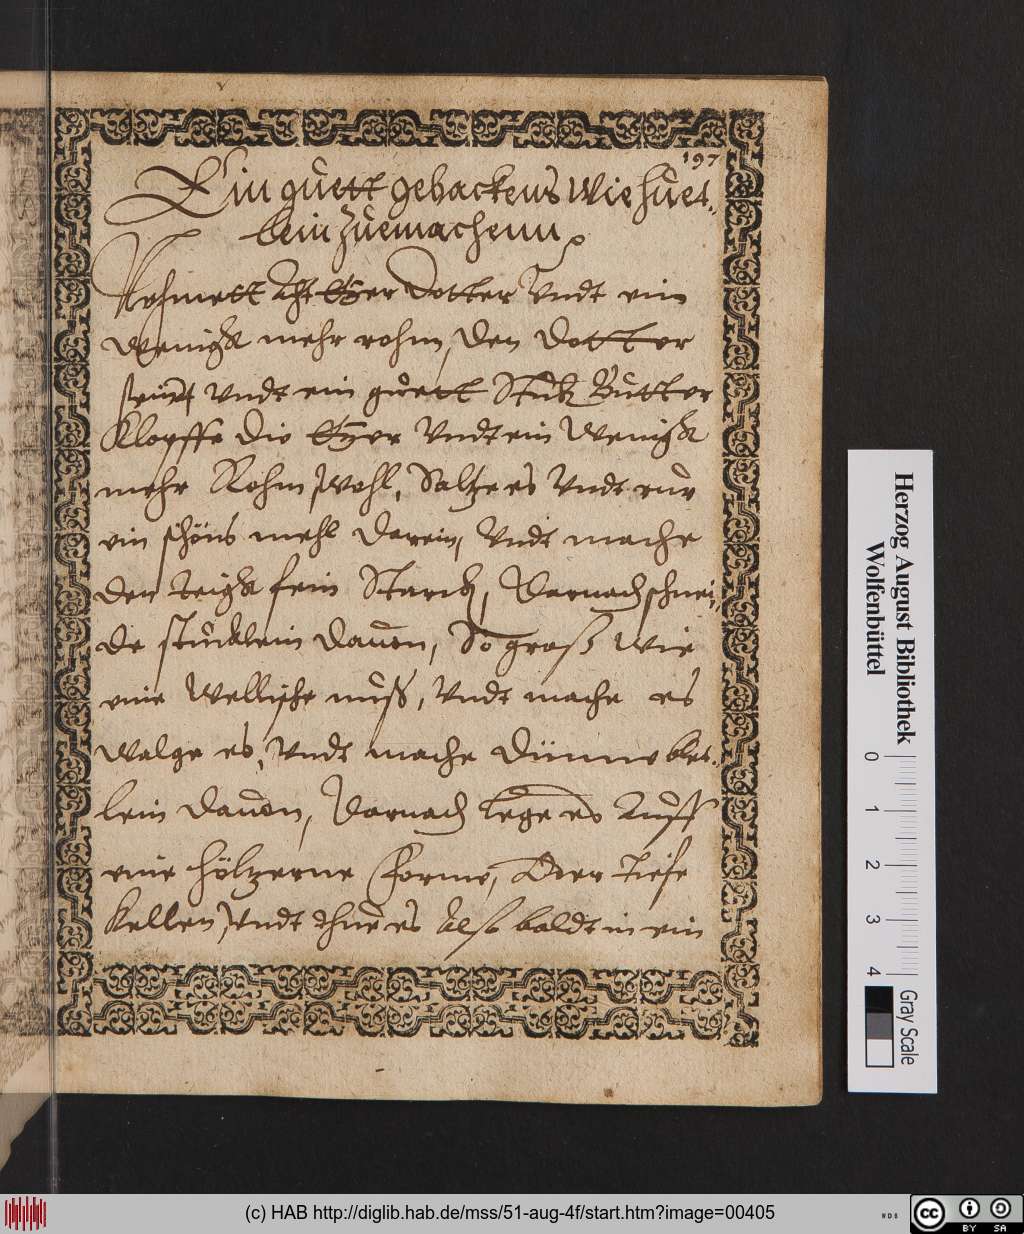 197
Ein guett gebackens wie huet-
lein zuemachenn
Nehmett Acht Eÿer dotter Vndt ein
Wenigk mehr rohm, den dotter
seindt Vndt ein guett Stuck Butter
Klopffe die Eÿer Vndt ein Wenigk
mehr Rohm Wohl, Saltze es Vndt rur
ein schöns mehl darein, Vndt mache
den teigk fein Starck, Darnach schnei,
de stucklein dauon, So groß wie
eine Wellische nuß, Vndt mache es
walge es, Vndt mache dünne blet,
lein dauon, Darnach Lege es Auff
eine höltzerne Forme, Oder tiefe
Kellen, Vndt thue es Also baldt in ein
Herzog August Bibliothek
Wolfenbüttel
0 1 2 3 4
Gray Scale
(c) HAB http://diglib.hab.de/mss/51-aug-4f/start.htm?image=00405
WDB
cc
BY SA